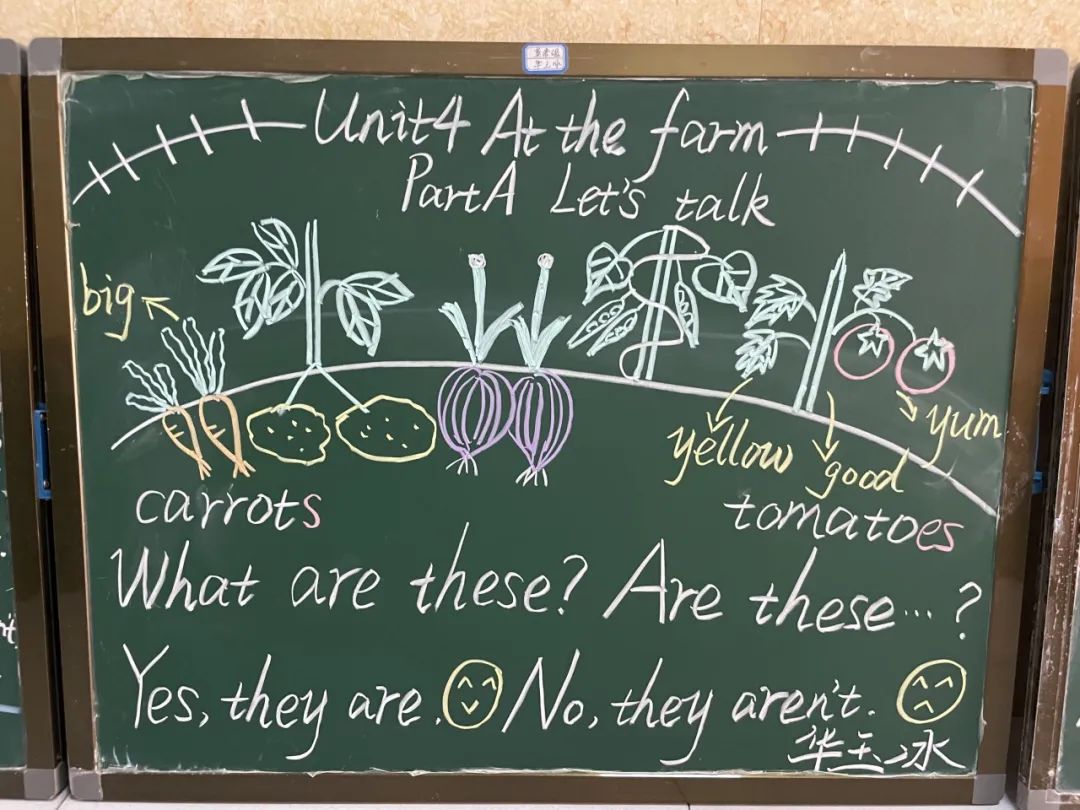 Unit4 At the farm
Part A Let's talk
big
yum
yellow
good
carrots
tomatoes
What are these? Are these...?
Yes, they are. No, they aren't.
华玉冰